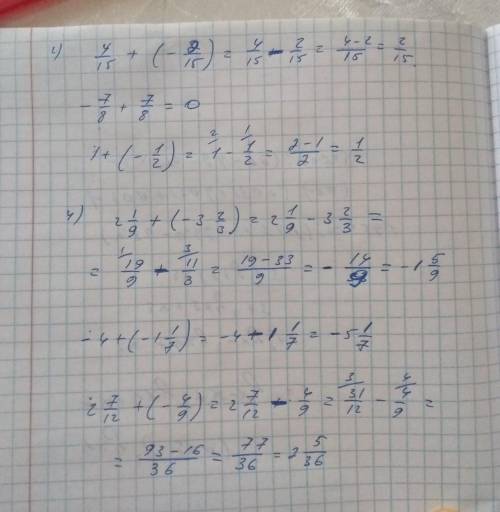 1) 4/15 + (- 2/15) = 4/15 - 2/15 = 4-2/15 = 2/15
- 7/8 + 7/8 = 0
1 + (- 1/2) = 2/ 1 - 1/ 1/2 = 2-1/2 = 1/2
4) 2 1/9 + (-3 2/3) = 2 1/9 - 3 2/3 =
= 1/ 19/9 - 3/ 11/3 = 19-33/9 = - 14/9 = -1 5/9
-4 + (-1 1/7) = -4 - 1 1/7 = -5 1/7
2 7/12 + (- 4/9) = 2 7/12 - 4/9 = 3/ 31/12 - 4/ 4/9 =
= 93-16/36 = 77/36 = 2 5/36